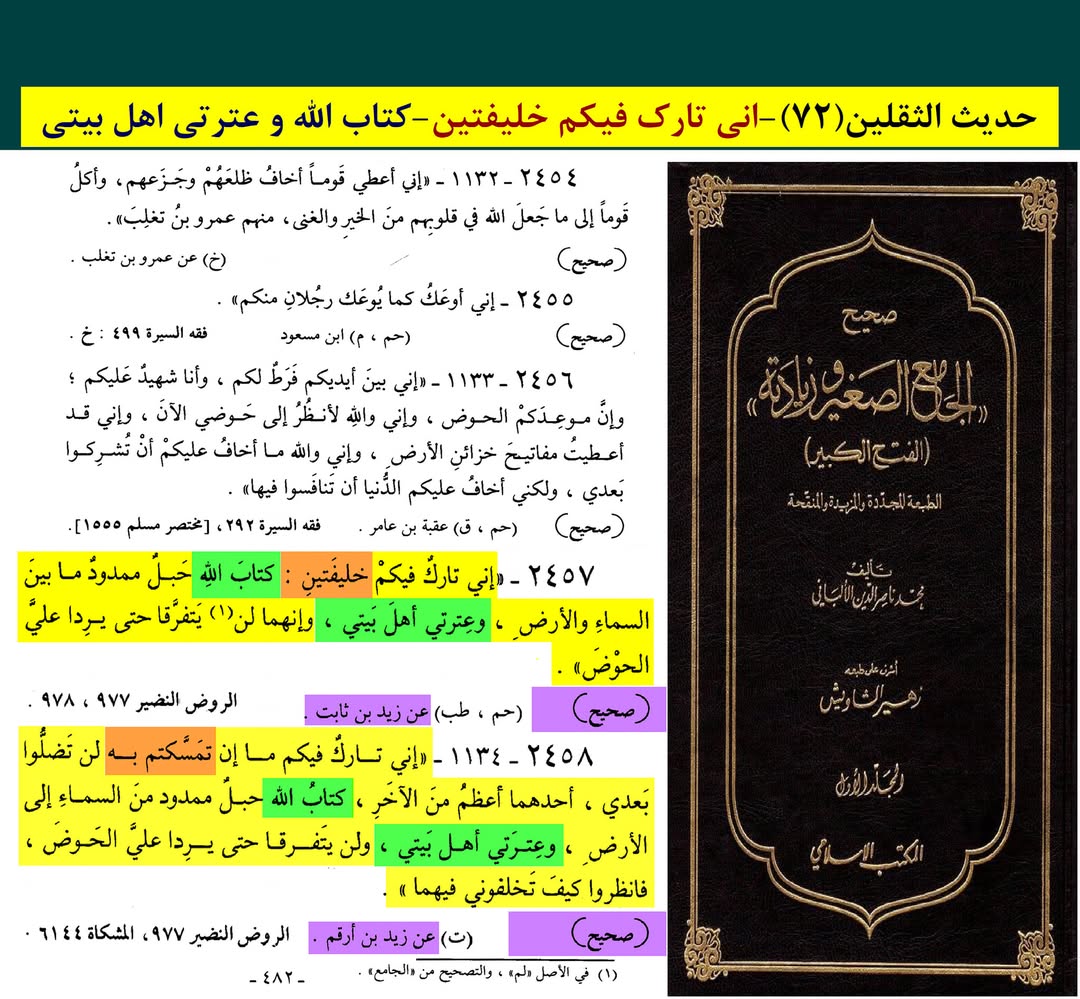 حدیث الثقلین(۷۲)-انی تارک فیکم خلیفتین-کتاب الله و عترتی اهل بیتی
٢٤٥٤ - ١١٣٢ - «إني أعطي قَوماً أخافُ ظلعَهُمْ وجَزَعهم، وأكلُ
قَوماً إلى ما جَعلَ الله في قلوبِهم منَ الخيرِ والغنى، منهم عمرو بنُ تغلِبَ».
(صحيح) (خ) عن عمرو بن تغلب .
٢٤٥٥ - إني أوعَكُ كما يُوعَك رجُلانِ منكم» .
(صحيح) (حم ، م) ابن مسعود فقه السيرة ٤٩٩ : خ .
٢٤٥٦ - ١١٣٣ - «إني بينَ أيديكم فَرَطٌ لكم ، وأنا شهيدٌ عَليكم ؛
وإنَّ مـوعِـدَكمْ الحـوض ، وإني واللهِ لأنـظُرُ إلى حَـوضي الآنَ ، وإني قـد
أعـطيتُ مفاتيـحَ خزائنِ الأرضِ ، وإني والله مـا أخافُ عليكمْ أنْ تُشرِكـوا
بَعدي ، ولكني أخافُ عليكم الدُّنيا أن تَنافَسوا فيها» .
(صحيح) (حم ، ق) عقبة بن عامر . فقه السيرة ٢٩٢ ، [مختصر مسلم ١٥٥٥].
٢٤٥٧ - «إني تاركٌ فيكمْ خليفَتينِ : كتابَ اللهِ حَبـلٌ ممدودٌ مـا بينَ
السماءِ والأرضِ ، وعِترتي أهلَ بَيتي ، وإنهما لن(١) يَتفرَّقا حتى يـرِدا عليَّ
الحوْضَ» .
(صحيح) (حم ، طب) عن زيد بن ثابت . الروض النضير ٩٧٧ ، ٩٧٨ .
٢٤٥٨ - ١١٣٤ - «إني تـاركٌ فيكم مـا إن تمَسَّكتم بـه لن تَضلُّوا
بَعدي ، أحدهما أعظمُ منَ الآخَرِ ، كتابُ الله حبـلٌ ممدود منَ السماءِ إلى
الأرضِ ، وعِتـرَتي أهـل بَيتي ، ولن يَتفـرقـا حتى يـرِدا عليَّ الحَـوضَ ،
فانظروا كيفَ تَخلفوني فيهما» .
(صحيح) (ت) عن زيد بن أرقم . الروض النضير ٩٧٧، المشكاة ٦١٤٤ .
(١) في الأصل «لم» ، والتصحيح من «الجامع» .
- ٤٨٢ -
صحيح
«الجامع الصغير وزيادته»
(الفتح الكبير)
الطبعة المجددة والمزيدة والمنقحة
تأليف
محمد ناصر الدين الألباني
أشرف على طبعه
زهير الشاويش
المجلد الأول
المكتب الاسلامي